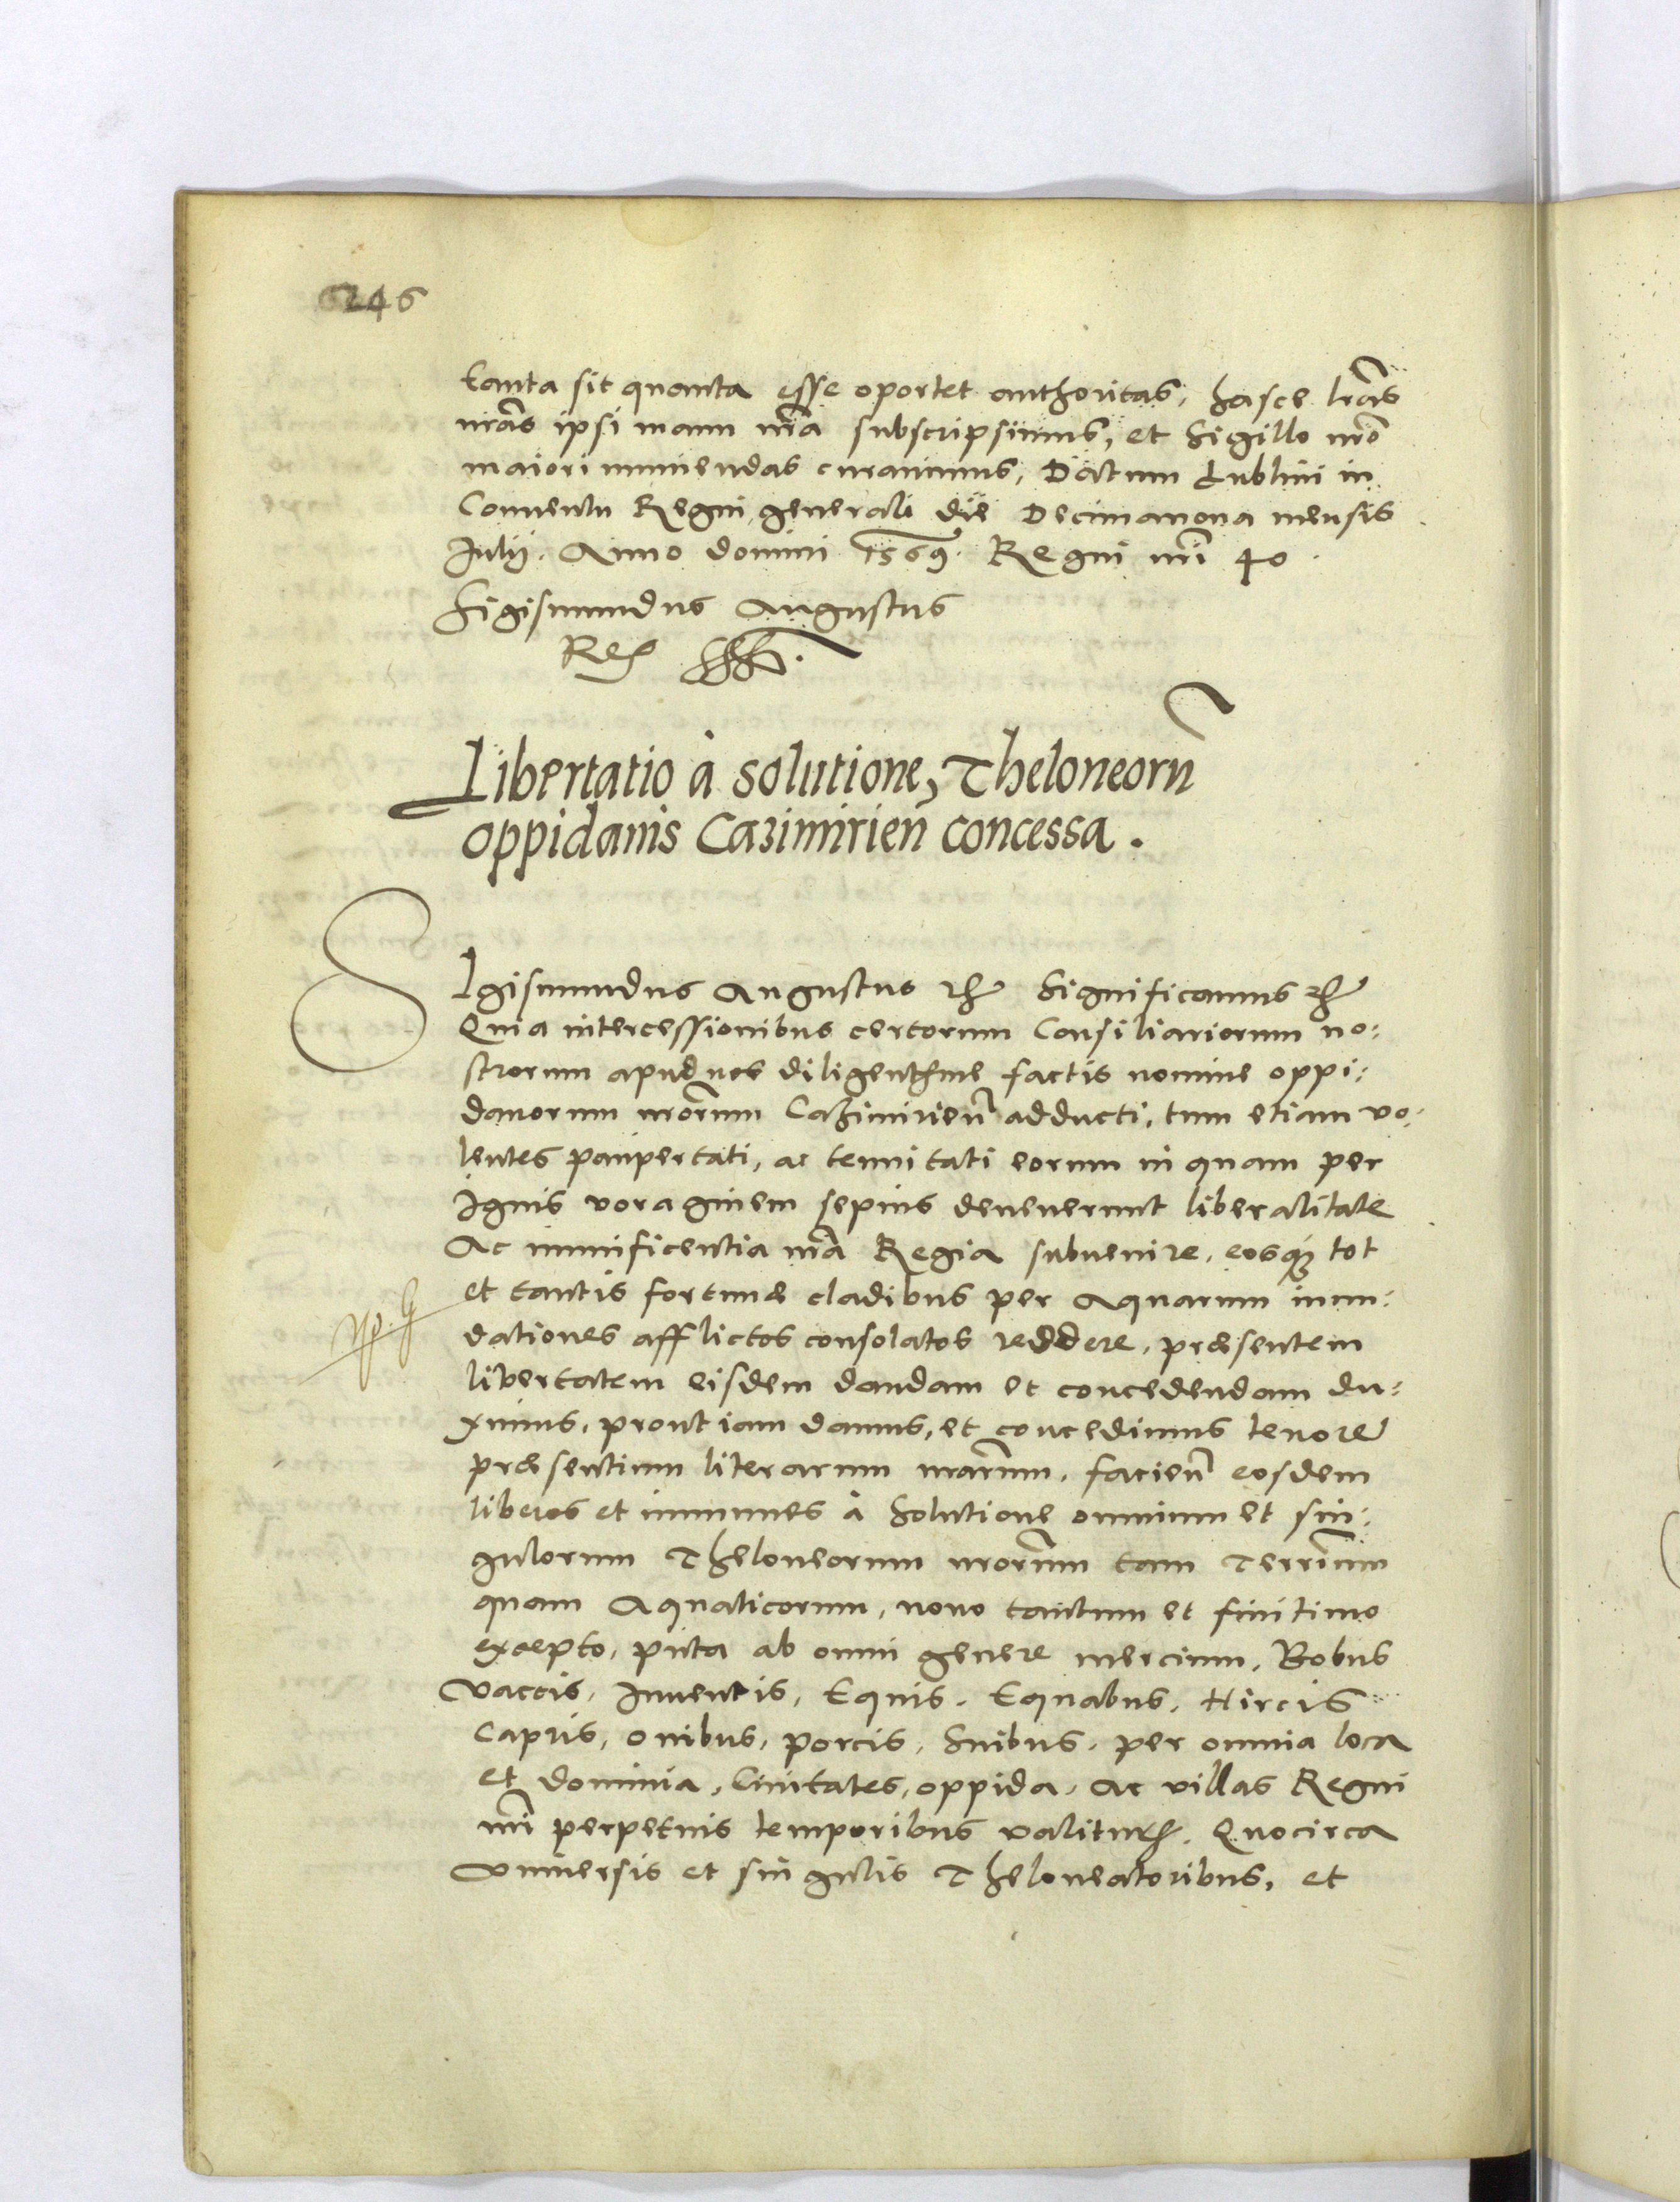 6246
tanta sit quanta esse oportet authoritas, hasce lr̃as
nr̃as ipsi manu nr̃a subscripsimus, et Sigillo nr̃o
maiori muniendas curauimus, Datum Lublini in
Conuentu Regni generali die Decimanona mensis
Iulij. Anno domini 1569. Regni nr̃i 40.
Sigismundus Augustus
Rex
Libertatio à solutione, Theloneorũ
oppidanis Cazimirien̄ concessa.
SIgismundus Augustus etc̃ Significamus etc̃
Quia intercessionibus certorum Consiliariorum no:
strorum apud nos diligentissime factis nomine oppi:
danorum nrõrum Cazimirien̄ adducti, tum etiam vo:
lentes paupertati, ac tenuitati eorum in quam per
Ignis voraginem sepius deuenerunt liberalitate
Ac munificentia nr̃a Regia subuenire, eosq́ꝫ tot
et tantis fortunæ cladibus per Aquarum inun:
dationes afflictos consolatos reddere, præsentem
libertatem eisdem dandam et concedendam du:
ximus, prout iam damus, et concedimus tenore
præsentium literarum nrãrum, facien̄ eosdem
liberos et immunes à Solutione omnium et sin:
gulorum Theloneorum nrõrum tam Terrium̃
quam Aquaticorum, nouo tantum et finitimo
excepto, puta ab omni genere mercium, Bobus
Vaccis, Iuuencis, Equis, Equabus, Hircis
Capris, ouibus, porcis, Suibus, per omnia loca
et dominia, Ciuitates, oppida, Ac villas Regni
nr̃i perpetuis temporibus valituræ. Quocirca
Vniuersis et singulis Theloneatoribus, et